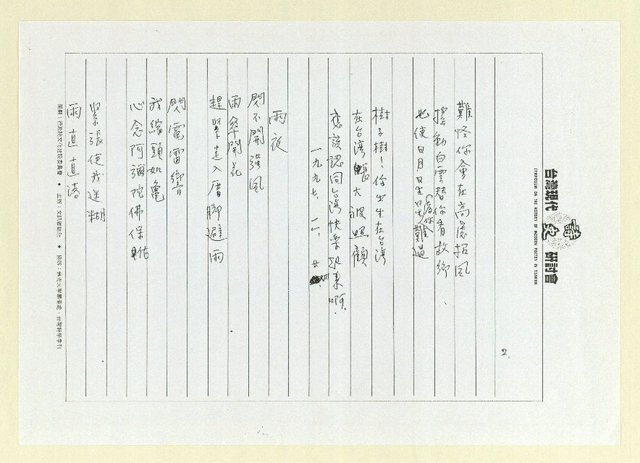 台灣現代詩史研討會
SYMPOSIUM ON THE HISTORY OF MODERN POETRY IN TAIWAN
2.
難怪你會在高處招風
搖動白雲替你看故鄉、
也使日月星星為你難過
樹子樹！你出生在台灣
在台灣長大被照顧
應該認同台灣快樂起來啊！
一九九七、六、廿
雨夜
閃不開強風
雨傘開花
趕緊走入厝腳避雨
閃電雷響
我縮頭如龜
心念阿彌陀佛保庇
緊張使我迷糊
雨直直落